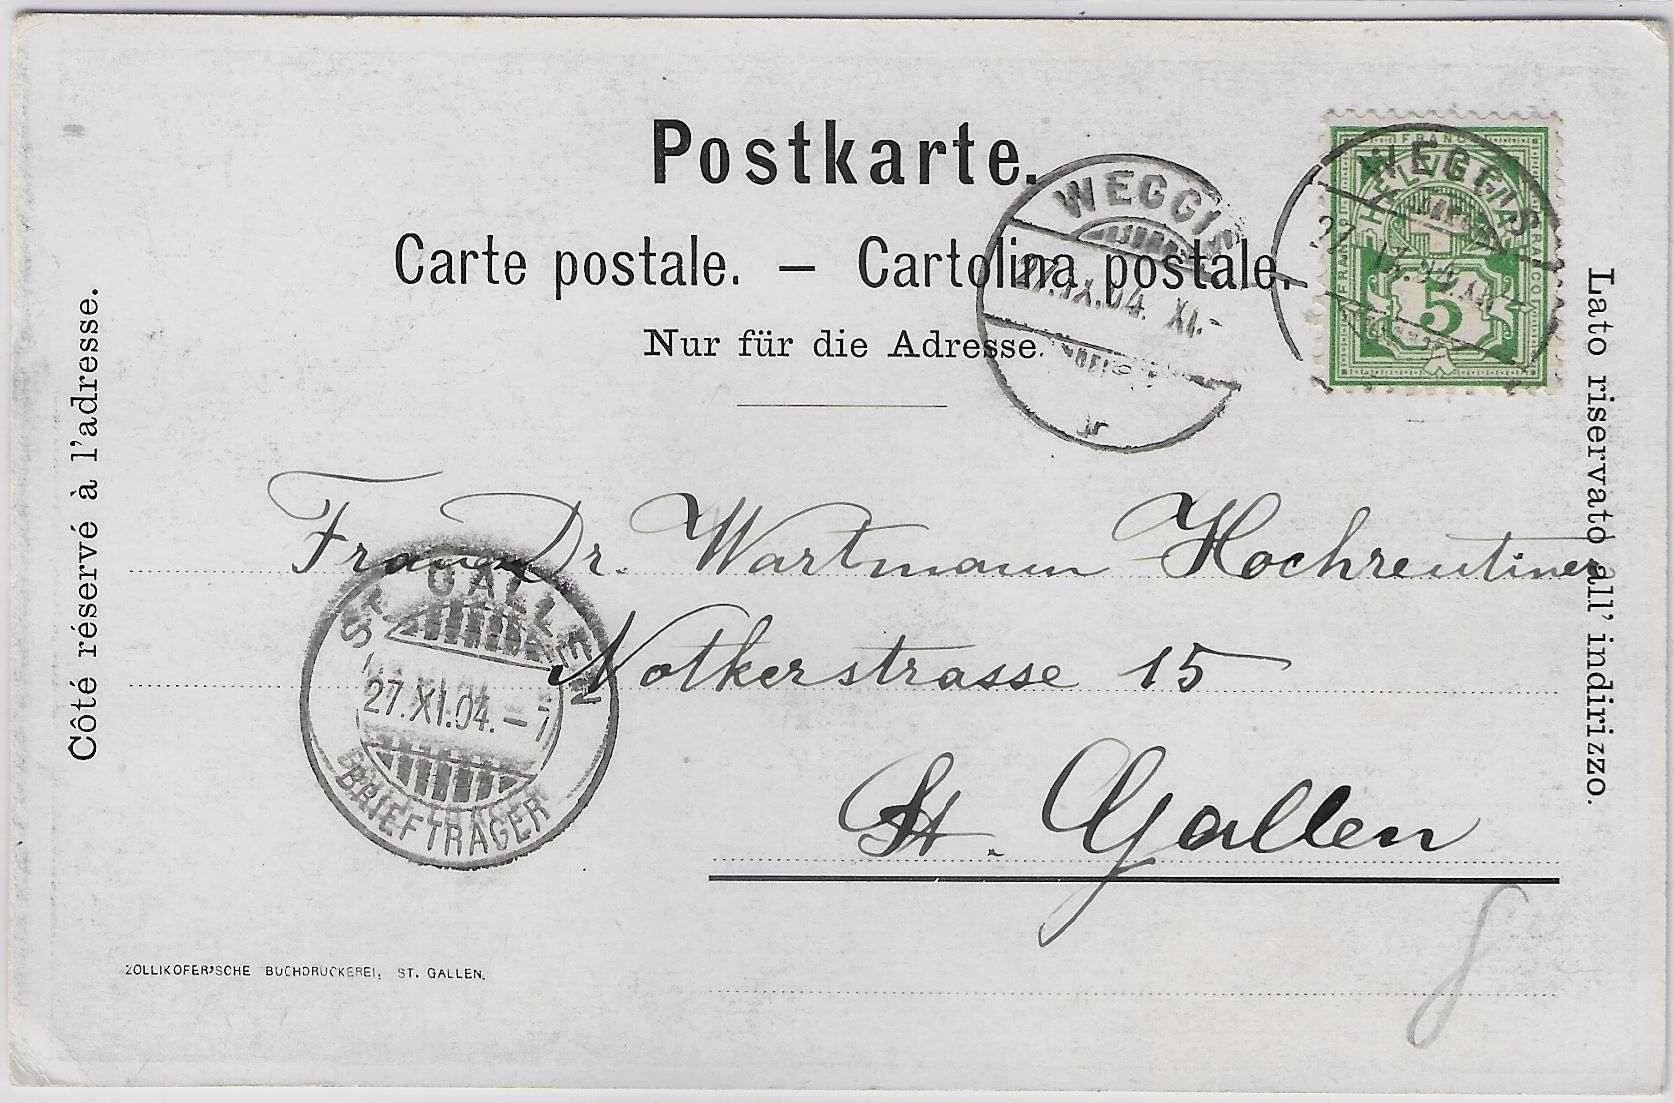 Postkarte.
Carte postale. – Cartolina postale.
Nur für die Adresse.
Côté réservé à l'adresse.
Lato riservato all' indirizzo.
WEGGIS
27.XI.04. XI.-
WEGGIS
FRANCO
HELVETIA
FRANCO
FRANCO
5
Frau Dr. Wartmann Hochreutiner
Notkerstrasse 15
St. Gallen
ST. GALLEN
27.XI.04.–7
BRIEFTRÄGER
8
ZOLLIKOFER'SCHE BUCHDRUCKEREI, ST. GALLEN.